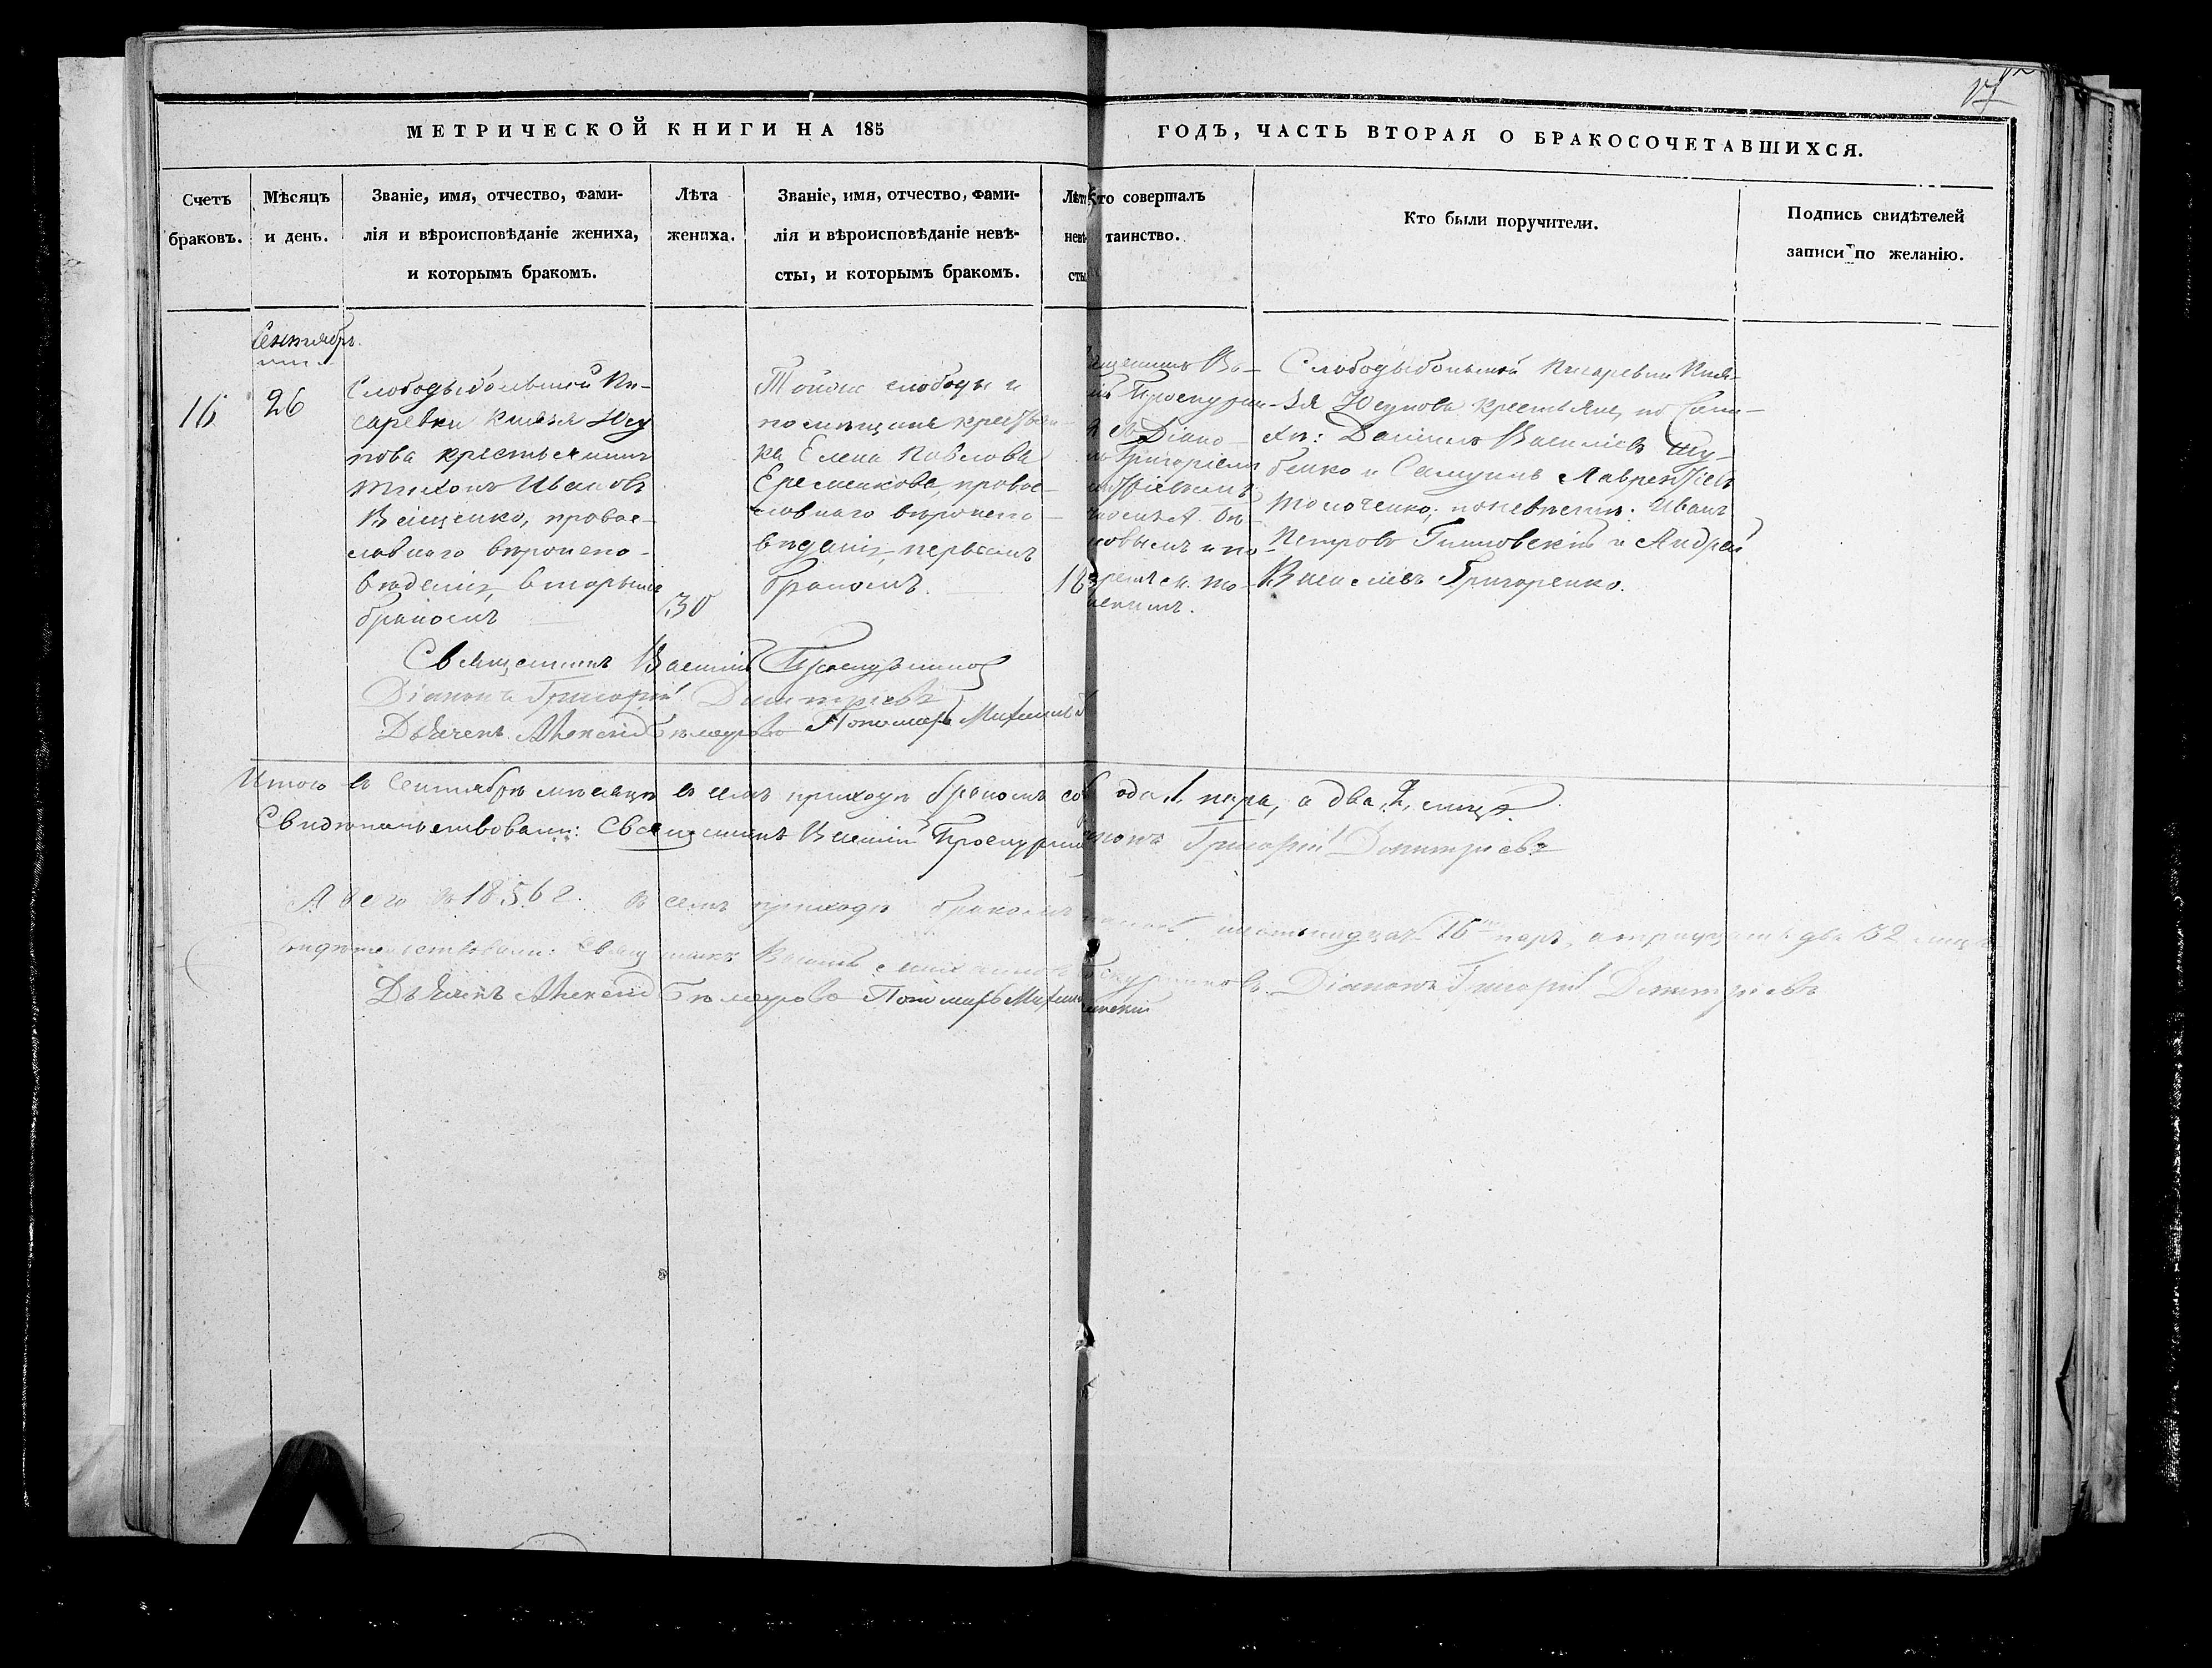 МЕТРИЧЕСКОЙ КНИГИ НА 185
ГОДЪ, ЧАСТЬ ВТОРАЯ О БРАКОСОЧЕТАВШИХСЯ.
Счетъ
браковъ.
Мѣсяцъ
и день.
Званіе, имя, отчество, фами-
лія и вѣроисповѣданіе жениха,
и которымъ бракомъ.
Лѣта
жениха.
Званіе, имя, отчество, фами-
лія и вѣроисповѣданіе невѣ-
сты, и которымъ бракомъ.
Лѣт
невѣ
сты
Кто совершалъ
таинство.
Кто были поручители.
Подпись свидѣтелей
записи по желанію.
Сентябрь
16
26
Слободы большой Пи-
саревки Князя Юсу
пова крестьянинъ
Тихонъ Ивановъ
Ващенко, правос-
лавнаго вѣроиспо-
вѣданія, вторымъ
бракомъ
30
Тойже слободы и
помѣщика крестьян-
ка Елена Павлова
Еременкова, правос-
лавнаго вѣроиспо-
вѣданія, первымъ
бракомъ.
18
Діако-
Григоріемъ
Слободы большой Писаревки Кня-
зя Юсупова крестьяне, по Жени-
хѣ: Даніилъ Васильевъ Шу-
бенко и Самуилъ Лаврентіевъ
Толоченко; по невѣстѣ: Иванъ
Петровъ и Андрей
Васильевъ Григоренко.
Священникъ Василій Проскурниковъ
Діаконъ Григорій Димитріевъ
Дьячекъ Алексѣй Пономарь Михаилъ
Итого въ Сентябрѣ мѣсяцѣ въ семъ приходѣ бракомъ одна 1, пара, а два, 2, лица.
Свидѣтельствовали: Священникъ Василій Григорій Димитріевъ
А всего въ 1856 г. въ семъ приходѣ бракомъ шестьнадцать 16 паръ, а тридцать два 32 лица
Священникъ Василій Діаконъ Григорій Димитріевъ
Дьячекъ Алексѣй Пономарь